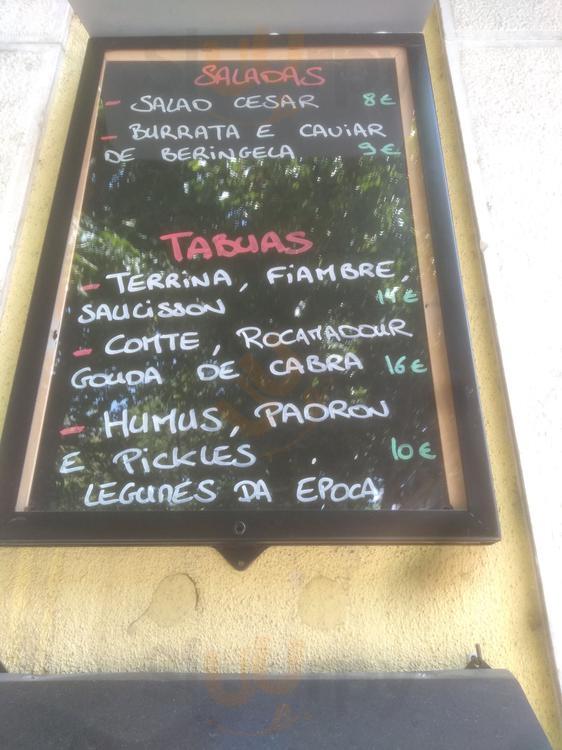 SALADAS
- SALAD CESAR 8€
- BURRATA E CAVIAR
DE BERINGELA 9€
TABUAS
- TERRINA, FIAMBRE,
SAUCISSON 14€
- COMTE, ROCAMADOUR
GOUDA DE CABRA 16€
- HUMUS, PADRON
E PICKLES 10€
LEGUMES DA EPOCA